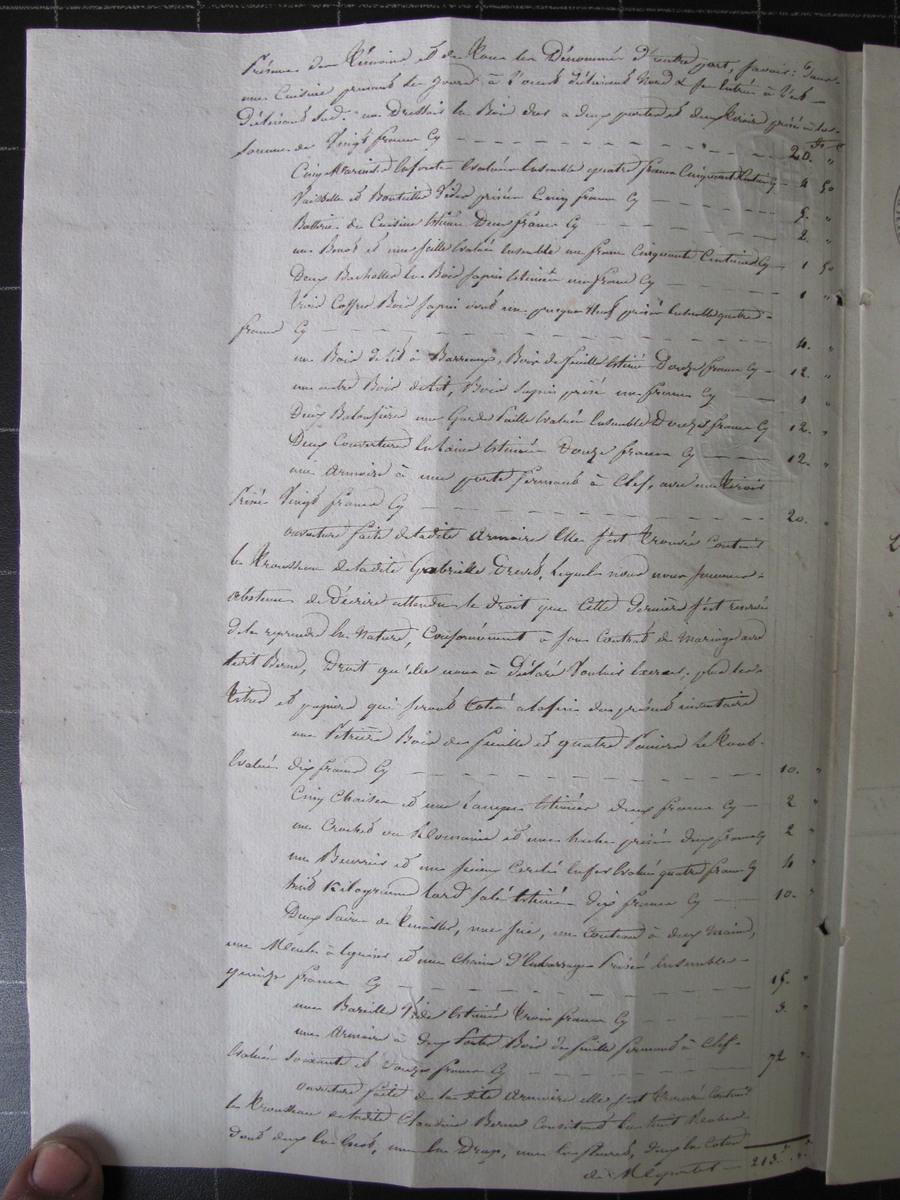 Présence des Témoins et de tous les Dénommés d'autre part, savoir: Dans
une Cuisine prenant les jours à l'ouest détrieux Nord & son Entrée à l'est
un Dressoir en Bois dur a deux portes et deux tiroirs prisé à la
somme de Vingt francs Cy — 20. "
Cinq Marmites en fonte Evaluées Ensemble quatre francs Cinquante Centimes Cy — 4 50
Vaisselle et Bouteilles Vides prisées Cinq francs Cy — 5. "
Batterie de Cuisine Estimée Deux francs Cy — 2. "
une et une seille Evaluées Ensemble un franc Cinquante Centimes Cy — 1 50
Deux en Bois sapin Estimées un franc Cy — 1 "
Trois Coffres Bois sapin dont un presque neuf prisés Ensemble quatre
francs Cy — 4. "
un Bois de lit à Barreaux, Bois de feuille Estimé Douze francs Cy — 12. "
un autre Bois de lit, Bois sapin prisé un franc Cy — 1 "
Deux une Garde Paille Evaluées Ensemble Douze francs Cy 12. "
Deux Couvertures en laine Estimées Douze francs Cy — 12. "
une Armoire à une porte fermant à Clef, avec un Tiroir
Prisée Vingt francs Cy — 20. "
ouverture faite de ladite Armoire Elle s'est trouvée contenir
le Trousseau de ladite Gabrielle, lequel nous nous sommes
abstenus de Décrire attendu le droit que Cette dernière s'est réservé
de le reprendre En Nature, Conformément à son Contrat de Mariage avec
ledit Berne, Droit qu'elle nous à Déclaré Vouloir Exercer, plus les
titres et papiers qui seront Cotés à la fin du présent inventaire
une Pétrière Bois de feuille et quatre Paniers le tout
Evalués dix francs Cy — 10. "
Cinq Chaises et une Lampe Estimées deux francs Cy — 2 "
une ou Romaine et une hache prisées deux francs Cy 2 "
une Beurrière et un Cerclé en fer Evalués quatre francs Cy 4 "
huit Kilogrammes lard salé Estimés dix francs Cy — 10. "
Deux Paires de Tenailles, une scie, un Couteau à deux mains,
une Meule à Eguiser et une Chaine d' Prisés Ensemble
quinze francs Cy — 15. "
une Barille Vide Estimée Trois francs Cy — 3. "
une Armoire à deux Portes Bois de feuille fermant à Clef
Evaluée soixante et Douze francs Cy — 72 "
ouverture faite de ladite Armoire elle s'est trouvée Contenir
le Trousseau de ladite Claudine Berne Consistant En huit Robes
dont deux En, une En Drap, une En, deux En Coton
213